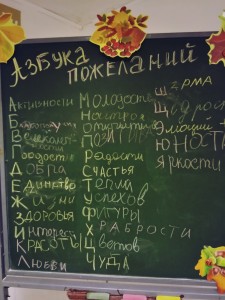 АЗБУКА
ПОЖЕЛАНИЙ
АКТИВНОСТИ
ГОРДОСТИ
ДОБРА
ЕДИНСТВО
ЖИЗНИ
ЗДОРОВЬЯ
ИНТЕРЕС
КРАСОТЫ
ЛЮБВИ
МОЛОДОСТЬ
ПОЗИТИВА
РАДОСТИ
СЧАСТЬЯ
ТЕПЛА
УСПЕХОВ
ФИГУРЫ
ХРАБРОСТИ
ЦВЕТОВ
ЧУДА
ЭМОЦИЙ
ЮНОСТИ
ЯРКОСТИ